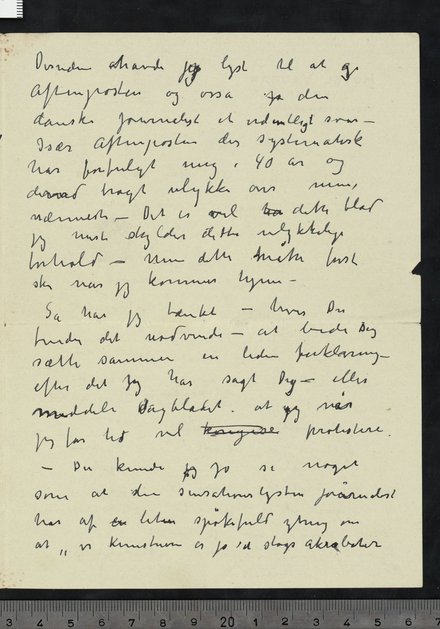 Desuden havde jeg lyst til at gi
Aftenposten og ossa den
danske journalist et ordentligt svar –
Især Aftenposten der systematisk
har forfulgt mig i 40 år og
dermed bragt ulykke over mine
nærmeste – Det er vel dette blad
jeg mest skylder dette ulykkelige
forhold – men dette måtte først
ske når jeg kommer hjem –
Så har jeg tænkt – hvis Du
finder det nødvende – at bede Dig
sætte sammen en liden forklaring
efter det jeg har sagt Dig – eller
meddele Dagbladet at jeg når
jeg får tid vil protestere.
– Du kunde jo si noget
som at den sensationslystne journalist
har af en liten spøkefuld ytring om
at „ vi kunstnere er jo et slags akrobater